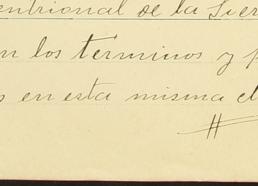 entrional de la Sier
n los terminos y p
s en esta misma el